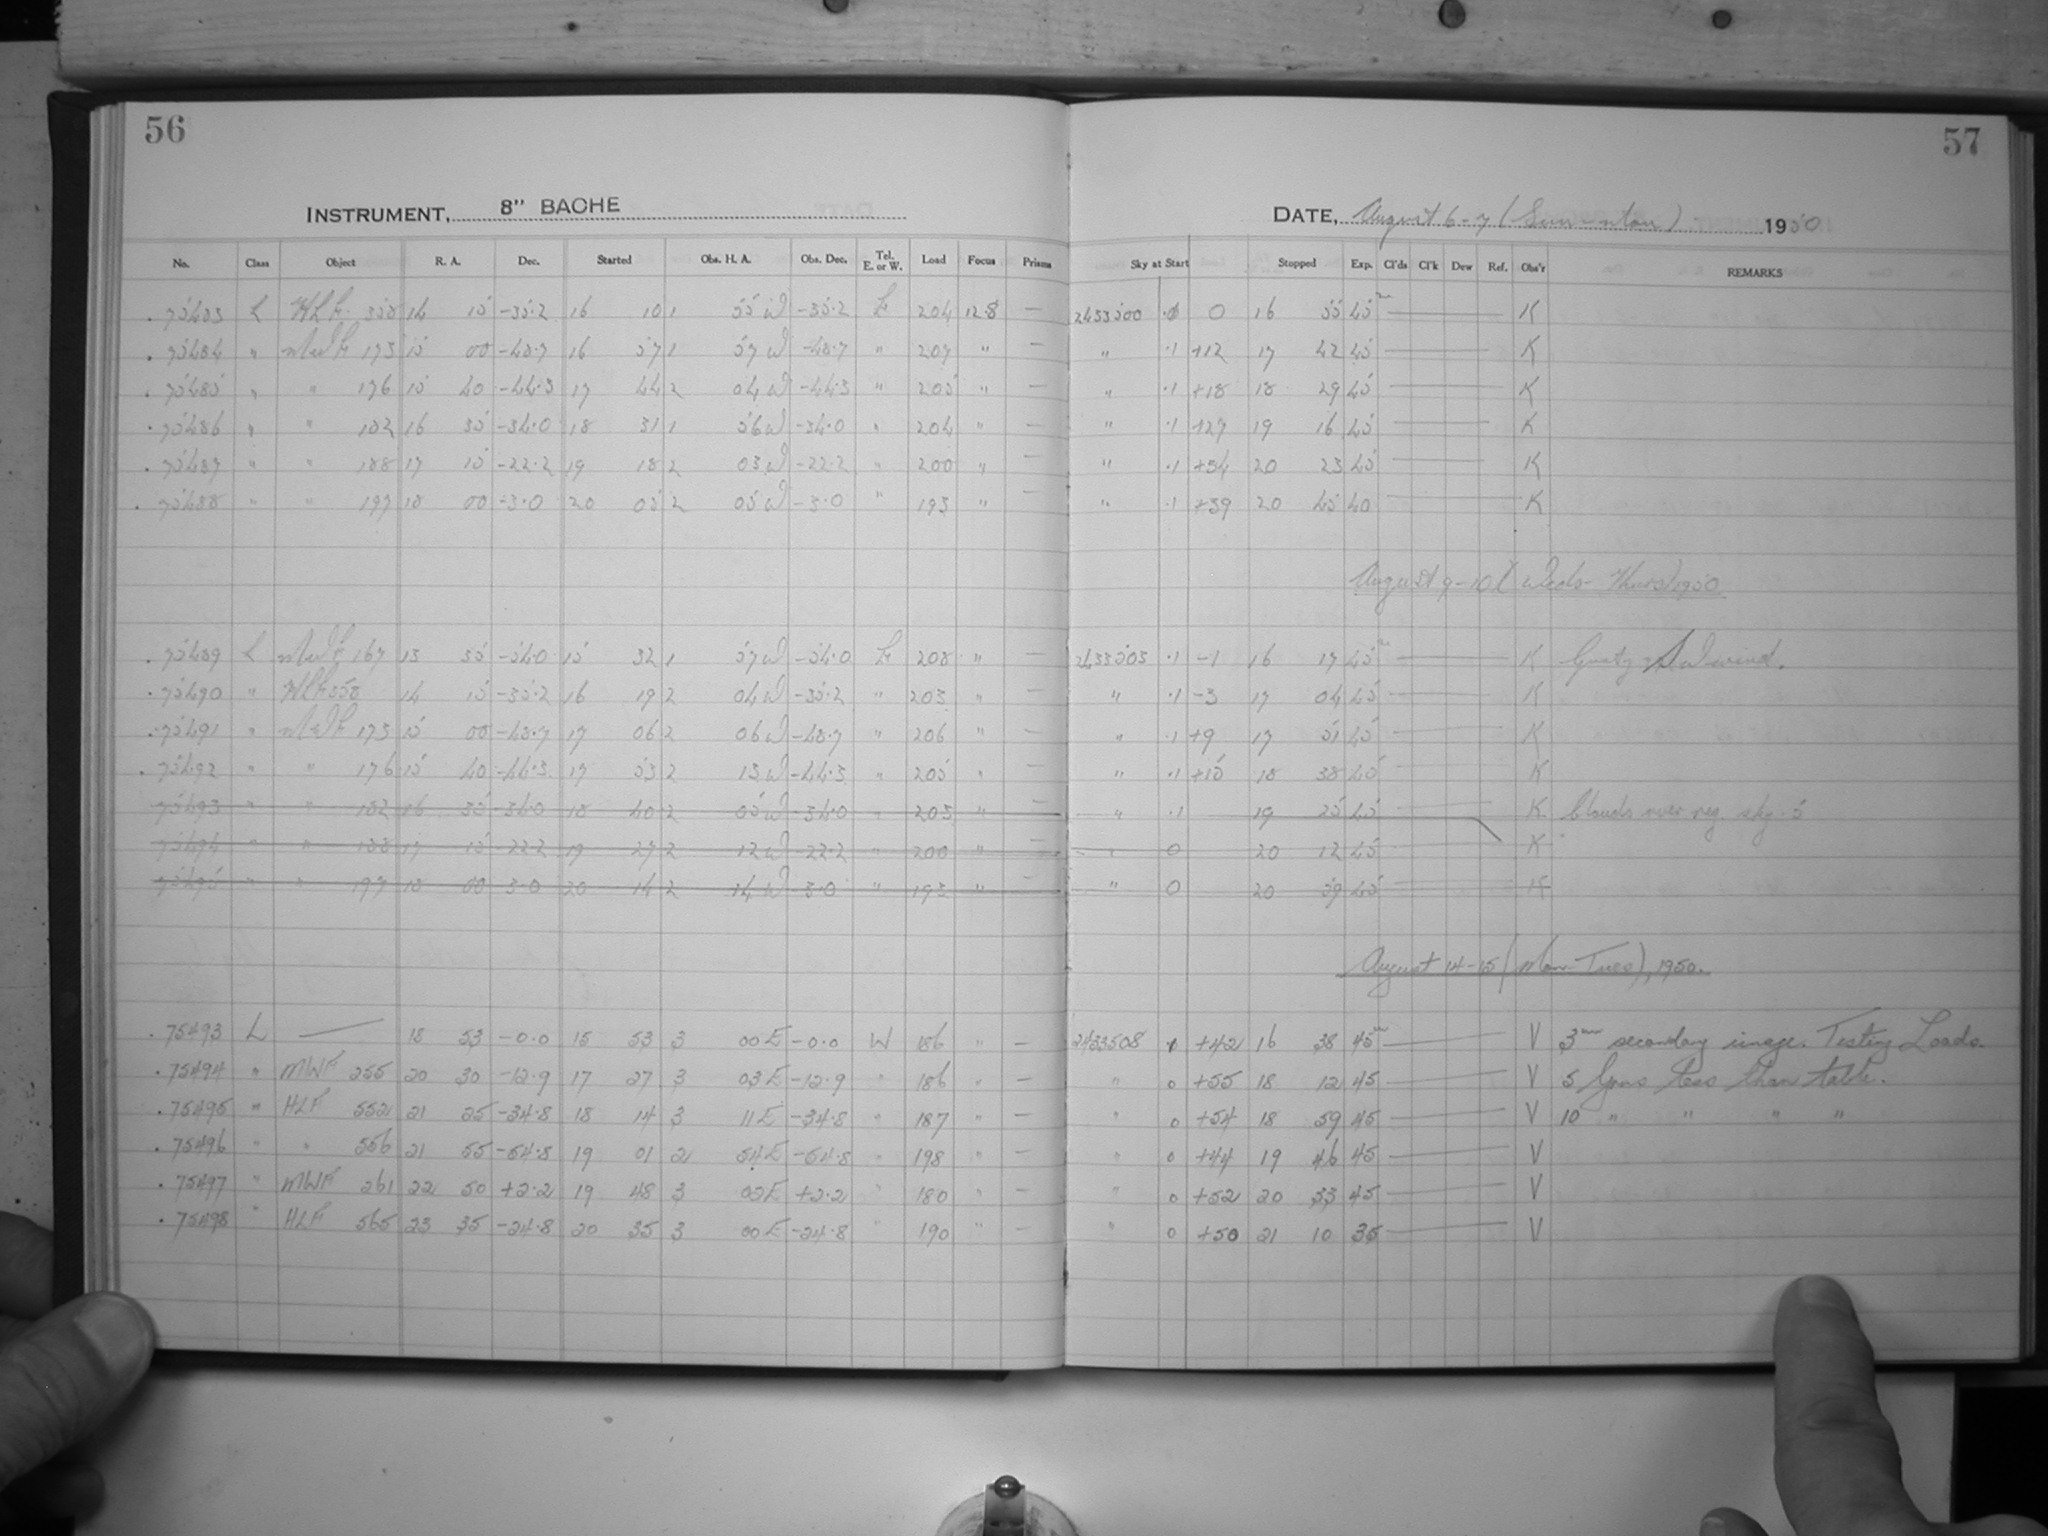 56
57
INSTRUMENT, 8" BACHE
DATE, August 6-7 (Sun-Mon) 1950
No. Class Object R. A. Dec. Started Obs. H. A. Obs. Dec. Tel. E. or W. Load Focus Prisms Sky at Start Stopped Exp. Cl'ds Cl'k Dew Ref. Obs'r REMARKS
. 75483 L HLF 558 14 15 -35.2 16 10 1 55 W -35.2 E 204 12.8 — 2433500 0 16 55 45m — K
. 75484 " MWF 173 15 00 -48.7 16 57 1 57 W -48.7 " 207 " — " .1 +12 17 42 45 — K
. 75485 " " 176 15 40 -44.3 17 44 2 04 W -44.3 " 205 " — " .1 +18 18 29 45 — K
. 75486 " " 182 16 35 -34.0 18 31 1 56 W -34.0 " 204 " — " .1 +27 19 16 45 — K
. 75487 " " 188 17 15 -22.2 19 18 2 03 W -22.2 " 200 " — " .1 +34 20 23 45 — K
. 75488 " " 197 18 00 -3.0 20 05 2 05 W -3.0 " 193 " — " .1 +39 20 45 40 — K
August 9-10 (Weds-Thurs) 1950
. 75489 L MWF 167 13 35 -54.0 15 32 1 57 W -54.0 E 208 " — 2433503 .1 -1 16 17 45m — K Gusty SW wind.
. 75490 " HLF 558 14 15 -35.2 16 19 2 04 W -35.2 " 203 " — " .1 -3 17 04 45 — K
. 75491 " MWF 173 15 00 -48.7 17 06 2 06 W -48.7 " 206 " — " .1 +9 17 51 45 — K
. 75492 " " 176 15 40 -44.3 17 53 2 13 W -44.3 " 205 " — " .1 +15 18 38 45 — K
75493 " " 182 16 35 -34.0 18 40 2 05 W -34.0 " 203 " — " .1 19 25 45 — K Clouds over reg. sky .5
75494 " " 188 17 15 -22.2 19 27 2 12 W -22.2 " 200 " — " 0 20 12 45 — K
75495 " " 197 18 00 -3.0 20 14 2 14 W -3.0 " 193 " — " 0 20 59 45 — K
August 14-15 (Mon-Tues), 1950.
. 75493 L — 18 53 -0.0 15 53 3 00 E -0.0 W 186 " — 2433508 +42 16 38 45m — V 3m secondary image. Testing Loads.
. 75494 " MWF 255 20 30 -12.9 17 27 3 03 E -12.9 " 186 " — " 0 +55 18 12 45 — V 5 less than table.
. 75495 " HLF 552 21 25 -34.8 18 14 3 11 E -34.8 " 187 " — " 0 +54 18 59 45 — V 10 " " " "
. 75496 " " 556 21 55 -54.8 19 01 2 54 E -54.8 " 198 " — " 0 +44 19 46 45 — V
. 75497 " MWF 261 22 50 +2.2 19 48 3 02 E +2.2 " 180 " — " 0 +52 20 33 45 — V
. 75498 " HLF 565 23 35 -24.8 20 35 3 00 E -24.8 " 190 " — " 0 +50 21 10 35 — V